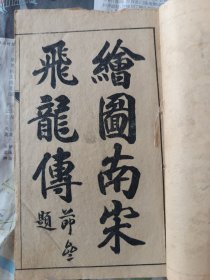 繪圖南宋
飛龍傳
題